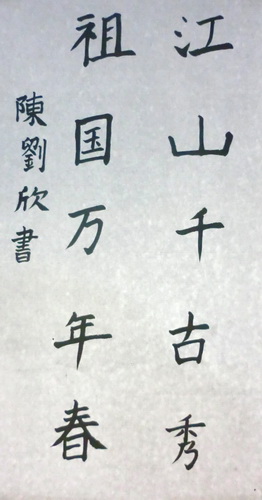 江山千古秀
祖国万年春
陳劉欣書